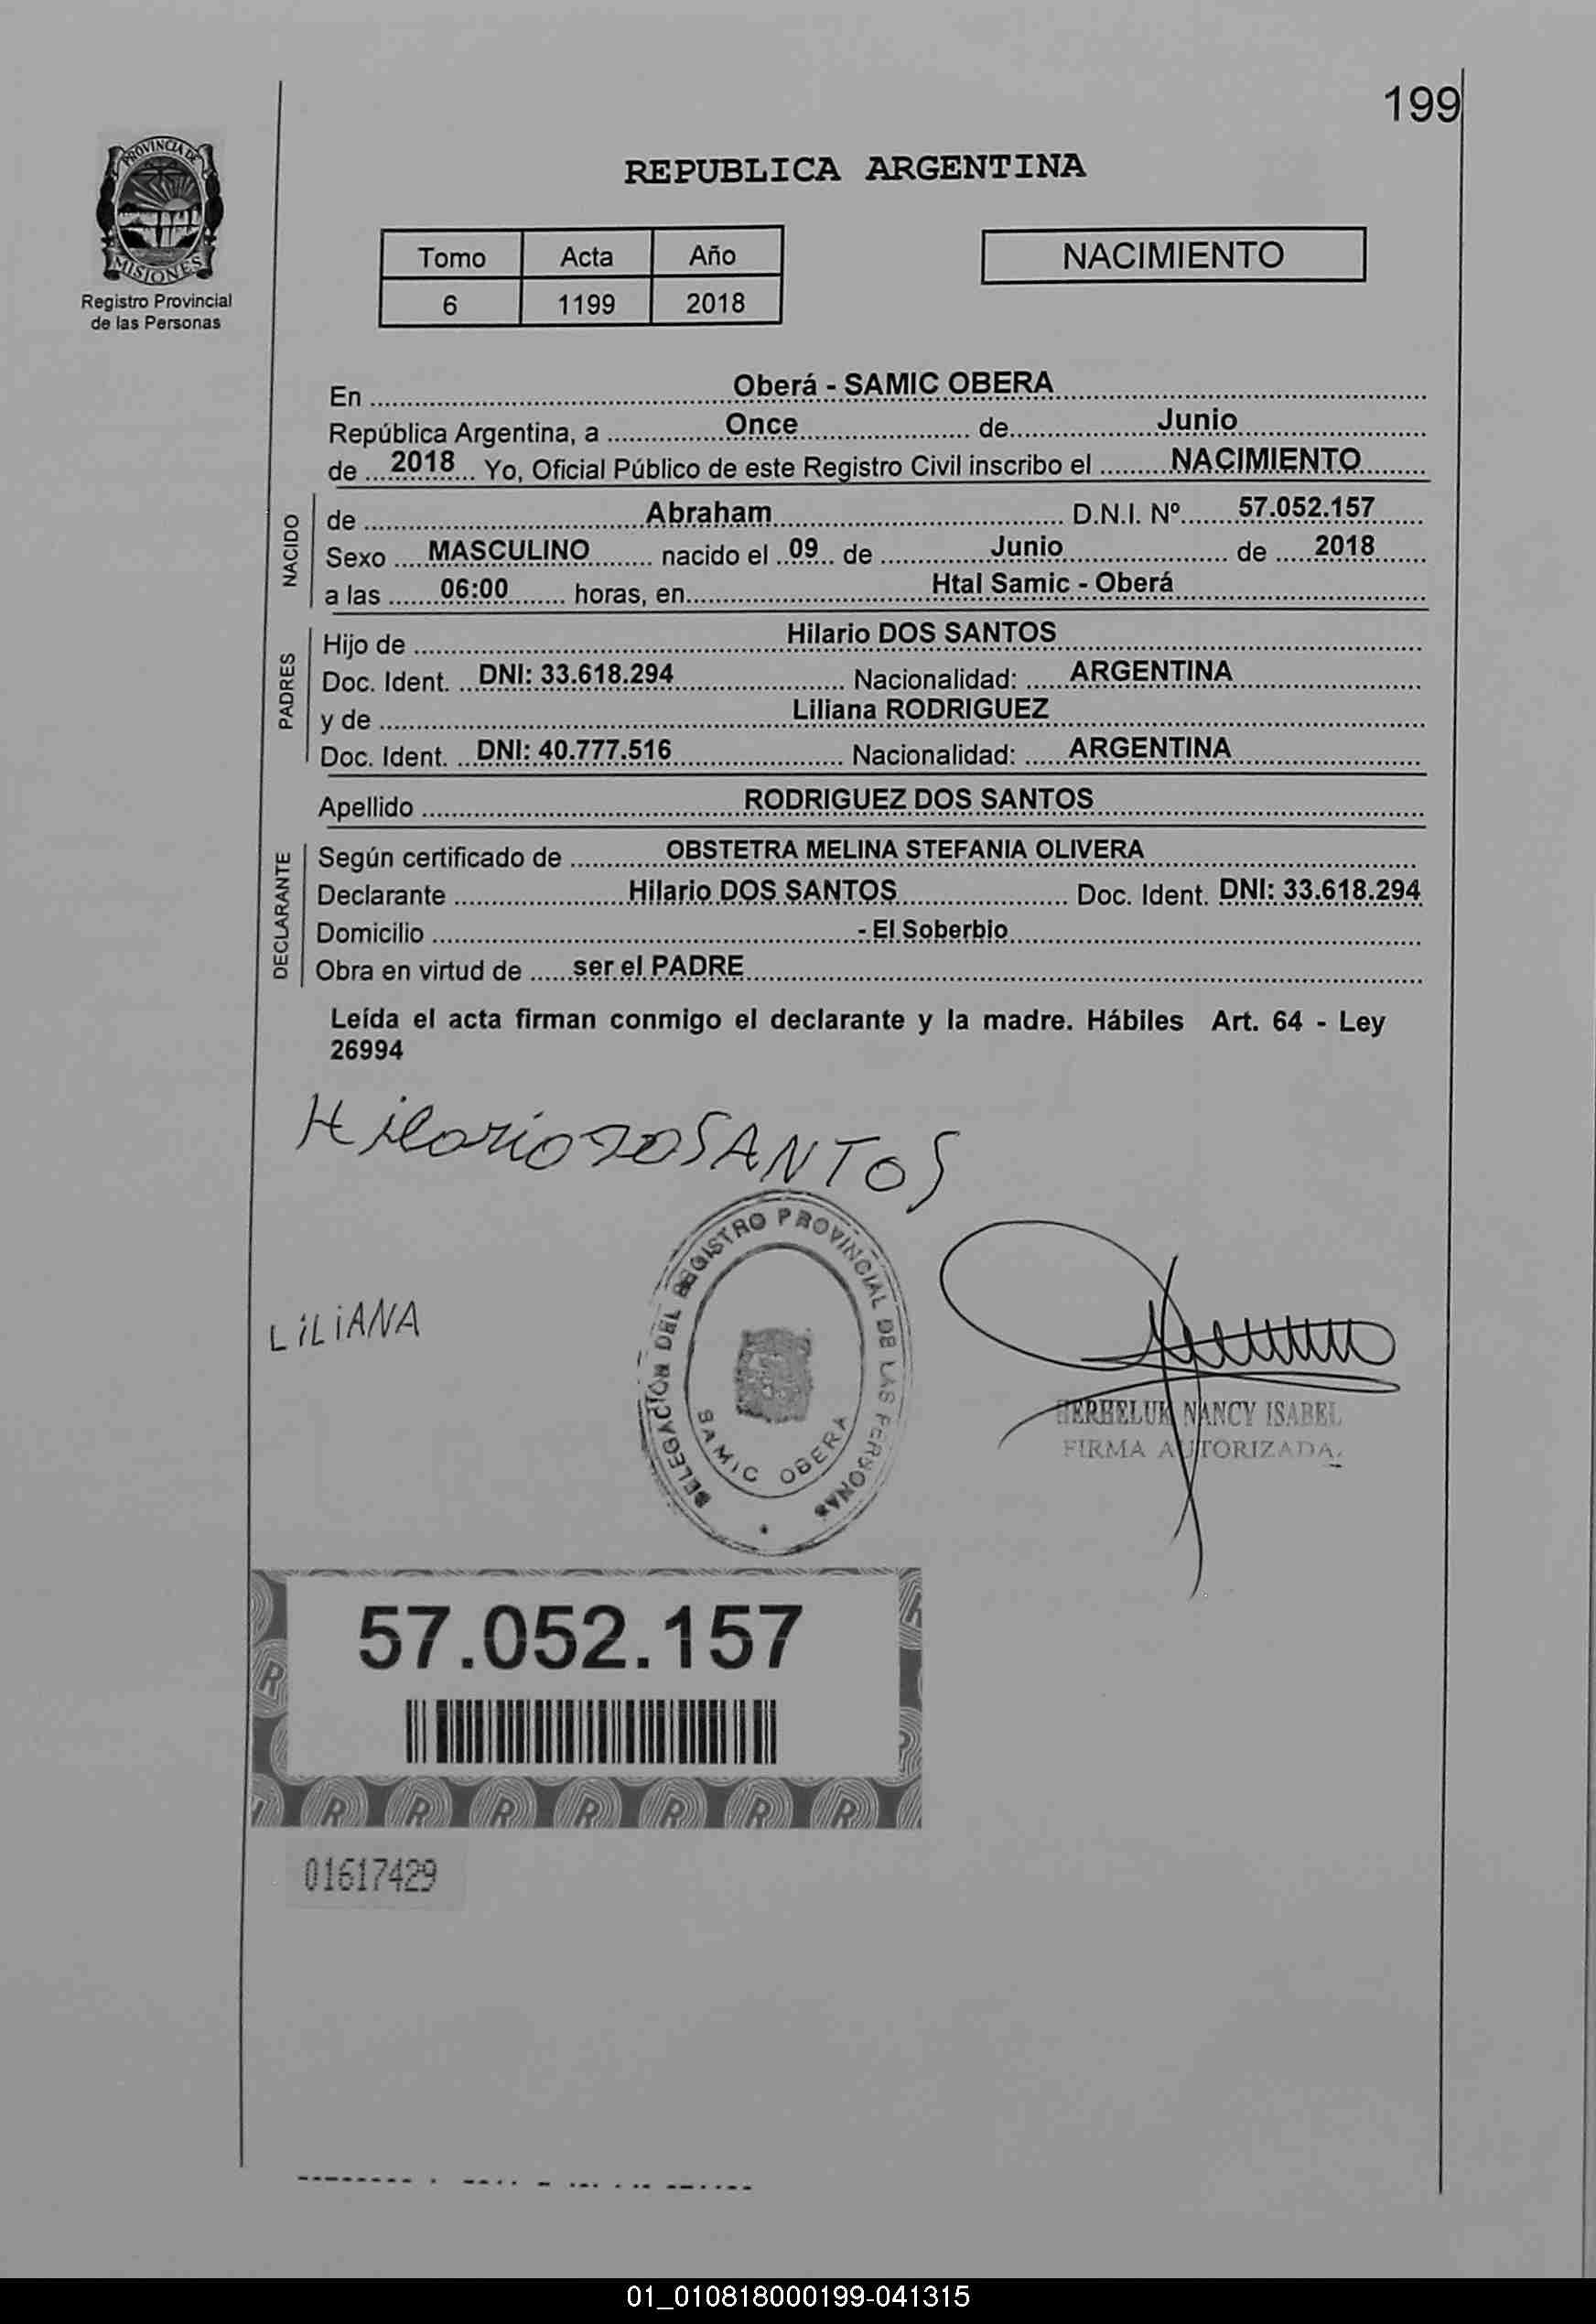 199
PROVINCIA DE
MISIONES
Registro Provincial
de las Personas
REPUBLICA ARGENTINA
Tomo Acta Año
6 1199 2018
NACIMIENTO
En Oberá - SAMIC OBERA
República Argentina, a Once de Junio
de 2018 Yo, Oficial Público de este Registro Civil inscribo el NACIMIENTO
NACIDO
de Abraham D.N.I. Nº 57.052.157
Sexo MASCULINO nacido el 09 de Junio de 2018
a las 06:00 horas, en Htal Samic - Oberá
PADRES
Hijo de Hilario DOS SANTOS
Doc. Ident. DNI: 33.618.294 Nacionalidad: ARGENTINA
y de Liliana RODRIGUEZ
Doc. Ident. DNI: 40.777.516 Nacionalidad: ARGENTINA
Apellido RODRIGUEZ DOS SANTOS
DECLARANTE
Según certificado de OBSTETRA MELINA STEFANIA OLIVERA
Declarante Hilario DOS SANTOS Doc. Ident. DNI: 33.618.294
Domicilio - El Soberbio
Obra en virtud de ser el PADRE
Leída el acta firman conmigo el declarante y la madre. Hábiles Art. 64 - Ley
26994
Hilario DOSANTOS
DELEGACIÓN DEL REGISTRO PROVINCIAL DE LAS PERSONAS
SAMIC OBERA
LiLiANA
NANCY ISABEL
FIRMA AUTORIZADA.
57.052.157
R R R R R R R
01617429
01_010818000199-041315